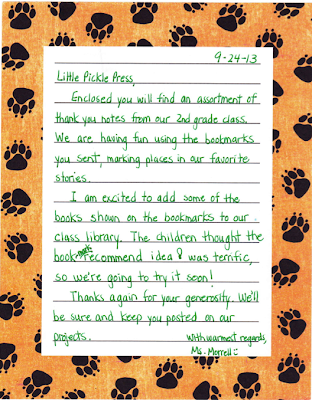 9-24-13
Little Pickle Press,
Enclosed you will find an assortment of
thank you notes from our 2nd grade class.
We are having fun using the bookmarks
you sent, marking places in our favorite
stories.
I am excited to add some of the
books shown on the bookmarks to our
class library. The children thought the
book-mark recommend idea & was terrific,
so we're going to try it soon!
Thanks again for your generosity. We'll
be sure and keep you posted on our
projects.
With warmest regards,
Ms. Morrell :